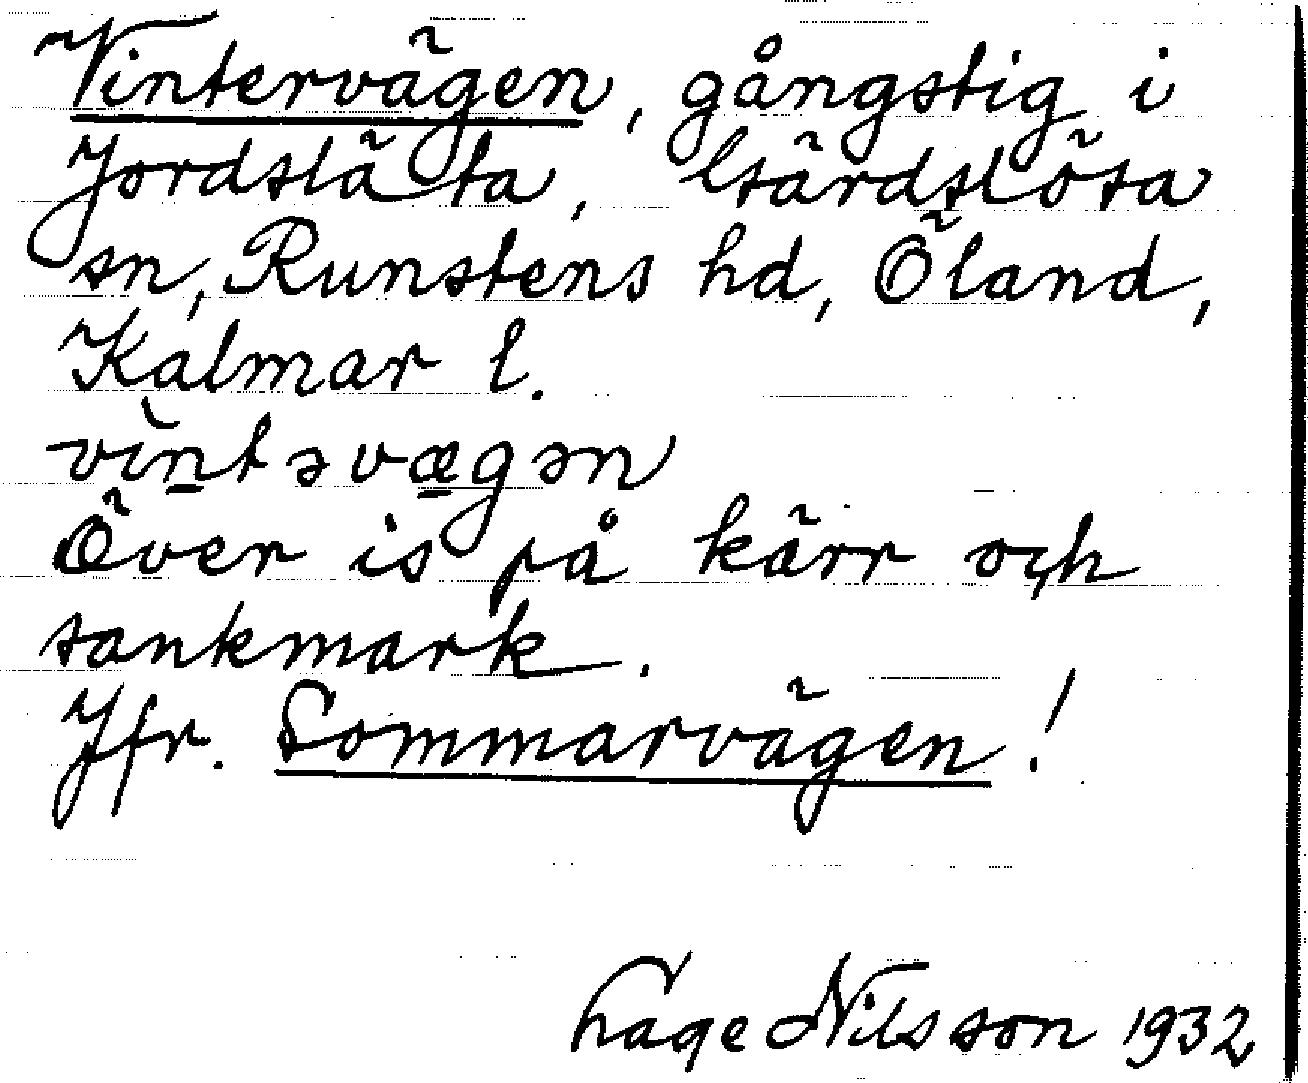 Vintervägen, gångstig i
Jordsläta, Gärdslösa
sn, Runstens hd, Öland,
Kalmar l.
vìntəvægən
Över is på kärr och
sankmark.
Jfr. Sommarvägen!
Nilsson 1932